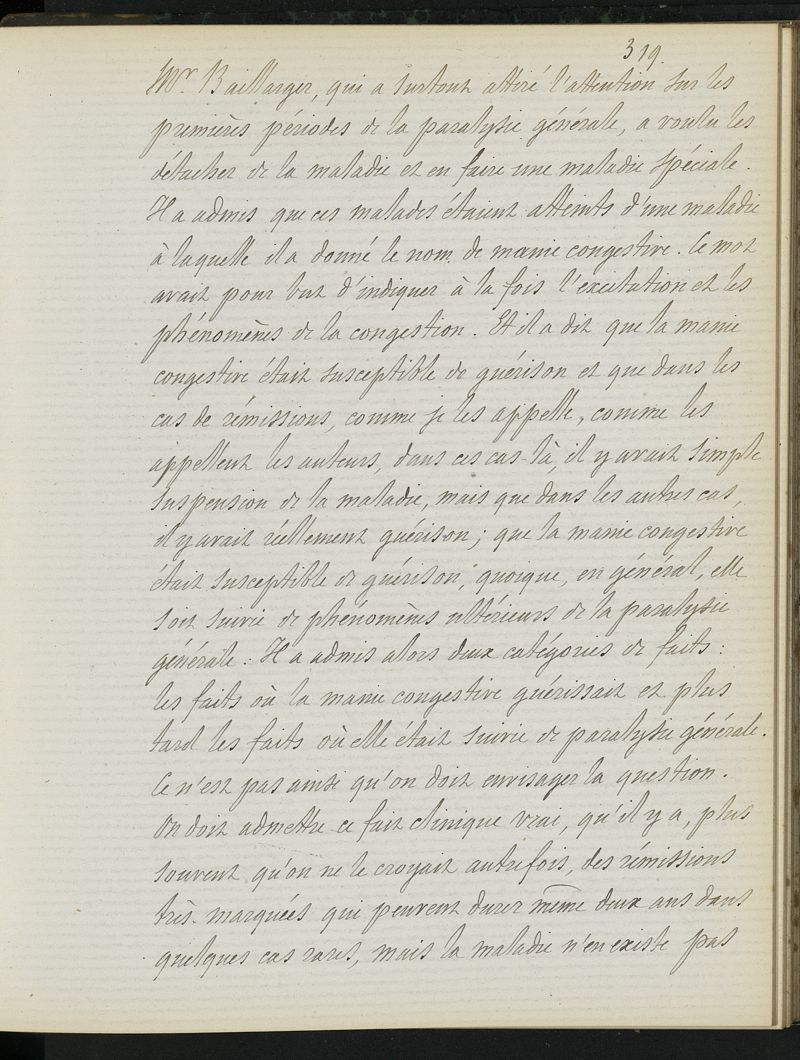 319.
Mr. Baillarger, qui a surtout attiré l'attention sur les
premières périodes de la paralysie générale, a voulu les
détacher de la maladie et en faire une maladie spéciale.
Il a admis que ces malades étaient atteints d'une maladie
à laquelle il a donné le nom de manie congestive. Ce mot
avait pour but d'indiquer à la fois l'excitation et les
phénomènes de la congestion. Et il a dit que la manie
congestive était susceptible de guérison et que dans les
cas de rémissions, comme je les appelle, comme les
appellent les auteurs, dans ces cas-là, il y avait simple
suspension de la maladie, mais que dans les autres cas,
il y avait réellement guérison; que la manie congestive
était susceptible de guérison, quoique, en général, elle
soit suivie de phénomènes ultérieurs de la paralysie
générale. Il a admis alors deux catégories de faits:
les faits où la manie congestive guérissait et plus
tard les faits où elle était suivie de paralysie générale.
Ce n'est pas ainsi qu'on doit envisager la question.
On doit admettre ce fait clinique vrai, qu'il y a, plus
souvent qu'on ne le croyait autrefois, des rémissions
très-marquées qui peuvent durer même deux ans dans
quelques cas rares, mais la maladie n'en existe pas